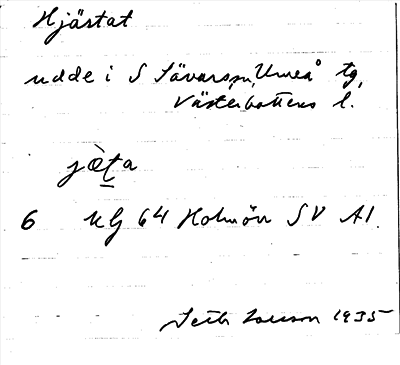 Hjästat
udde i S Sävarssn, Umeå tg,
Västerbottens l.
jæ̀ṯa
6 Klj 64 Holmön SV A1.
Seth Larsson 1935